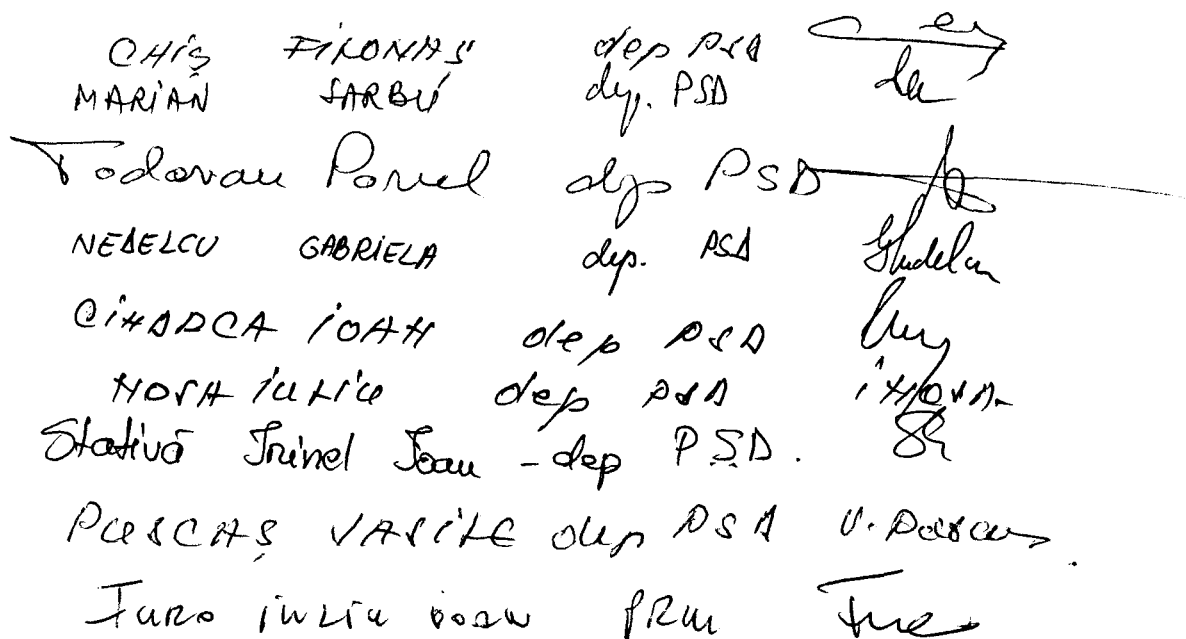 CHIŞ FILONAŞ dep PSD
MARIAN SARBU dep. PSD
Todoran Pavel dep PSD
NEDELCU GABRIELA dep. PSD
IOAN dep PSD
NOSA IULIU dep PSD iNOSA
Stativă Irinel Ioan - dep PSD.
PUSCAŞ VASILE dep PSD V. Puscas
Furo iuliu ioan PRM